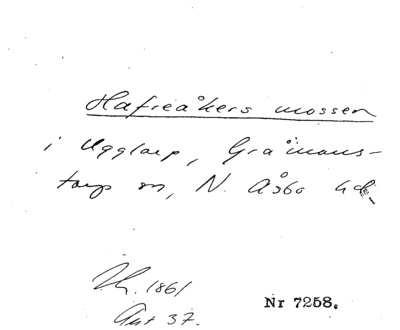 Hafreåkers mossen
i Ugglarp, Gråmans-
torps sn, N. Åsbo hd.
1861
Ant 37.
Nr 7258.